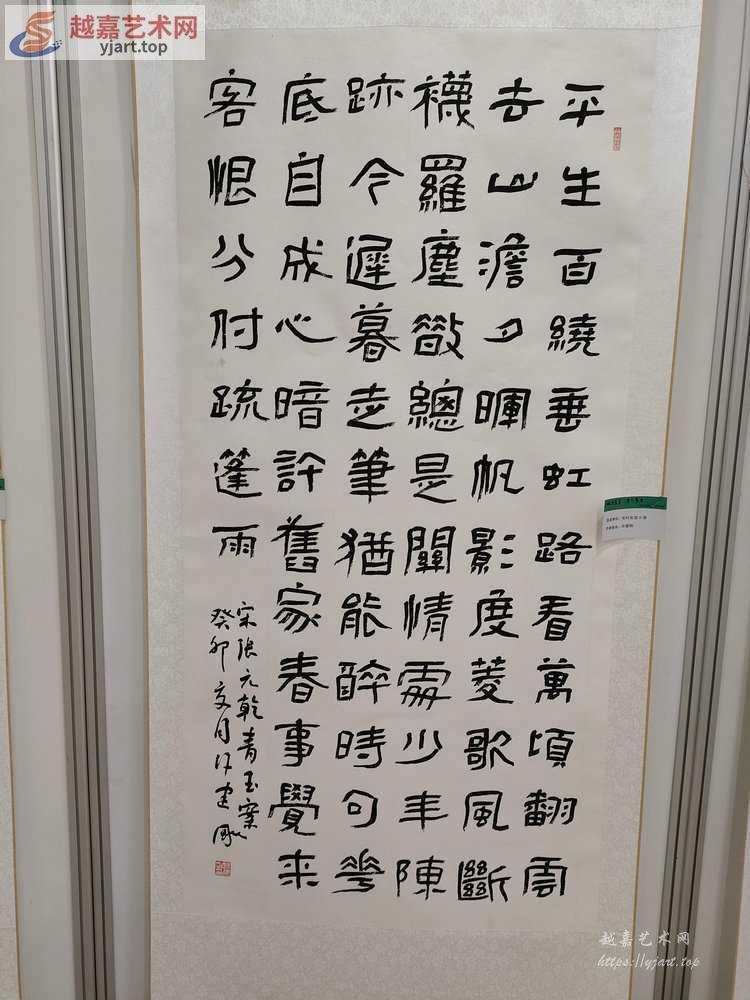 越嘉艺术网
yjart.top
平生百繞垂虹路看萬頃翻雲
去山澹夕暉帆影度菱歌風斷
襪羅塵斂總是關情處少年陳
跡今遲暮走筆猶能醉時句花
底自成心暗許舊家春事覺来
客恨分付疏篷雨
宋張元乾青玉案
癸卯夏月
越嘉艺术网
https://yjart.top